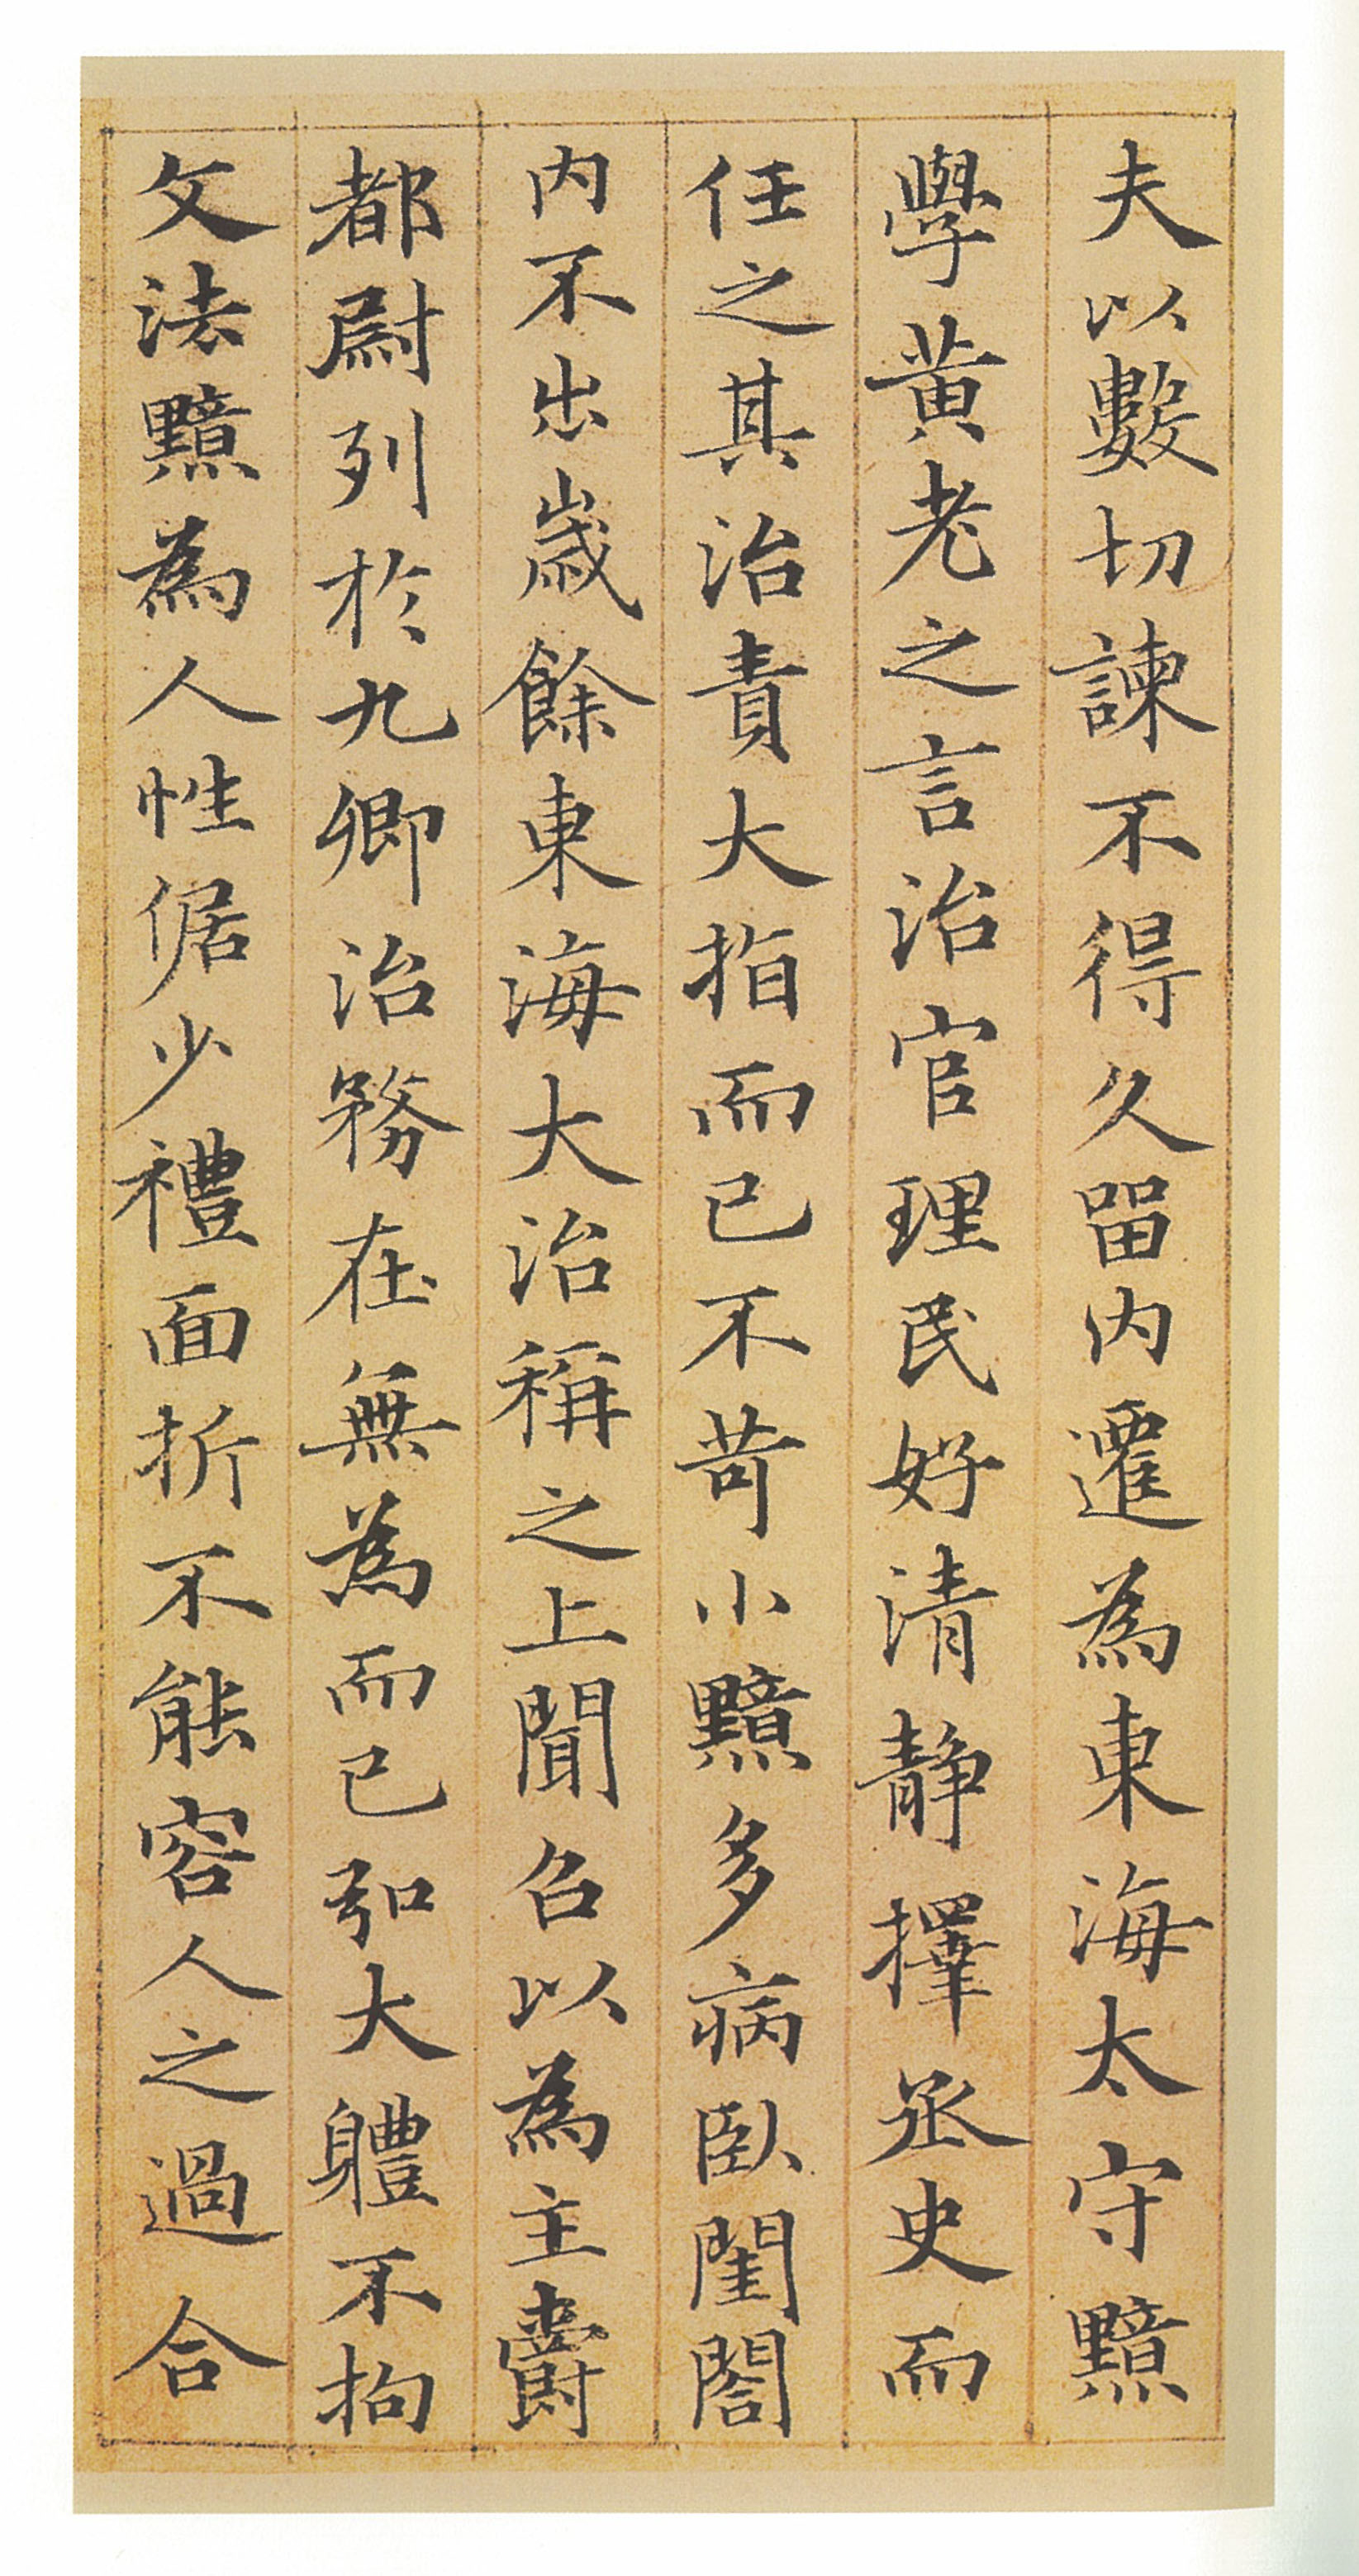 夫以數切諫不得久留内遷為東海太守黯
學黄老之言治官理民好清静擇丞史而
任之其治責大指而已不苛小黯多病臥閨閤
内不出歲餘東海大治稱之上聞召以為主爵
都尉列於九卿治務在無為而已弘大體不拘
文法黯為人性倨少禮面折不能容人之過合